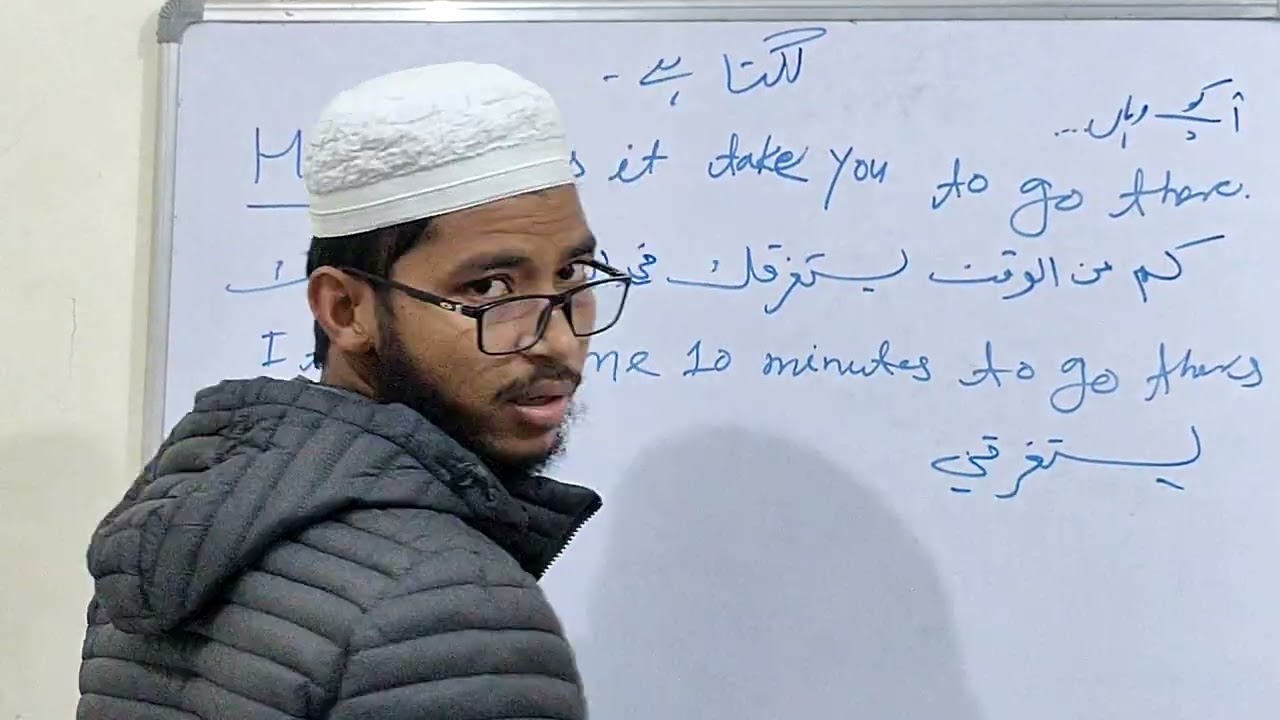 لگتا ہے -
آپ کو وہاں ...
it take you to go there.
كم من الوقت يستغرقك
me 10 minutes to go there
يستغرقني